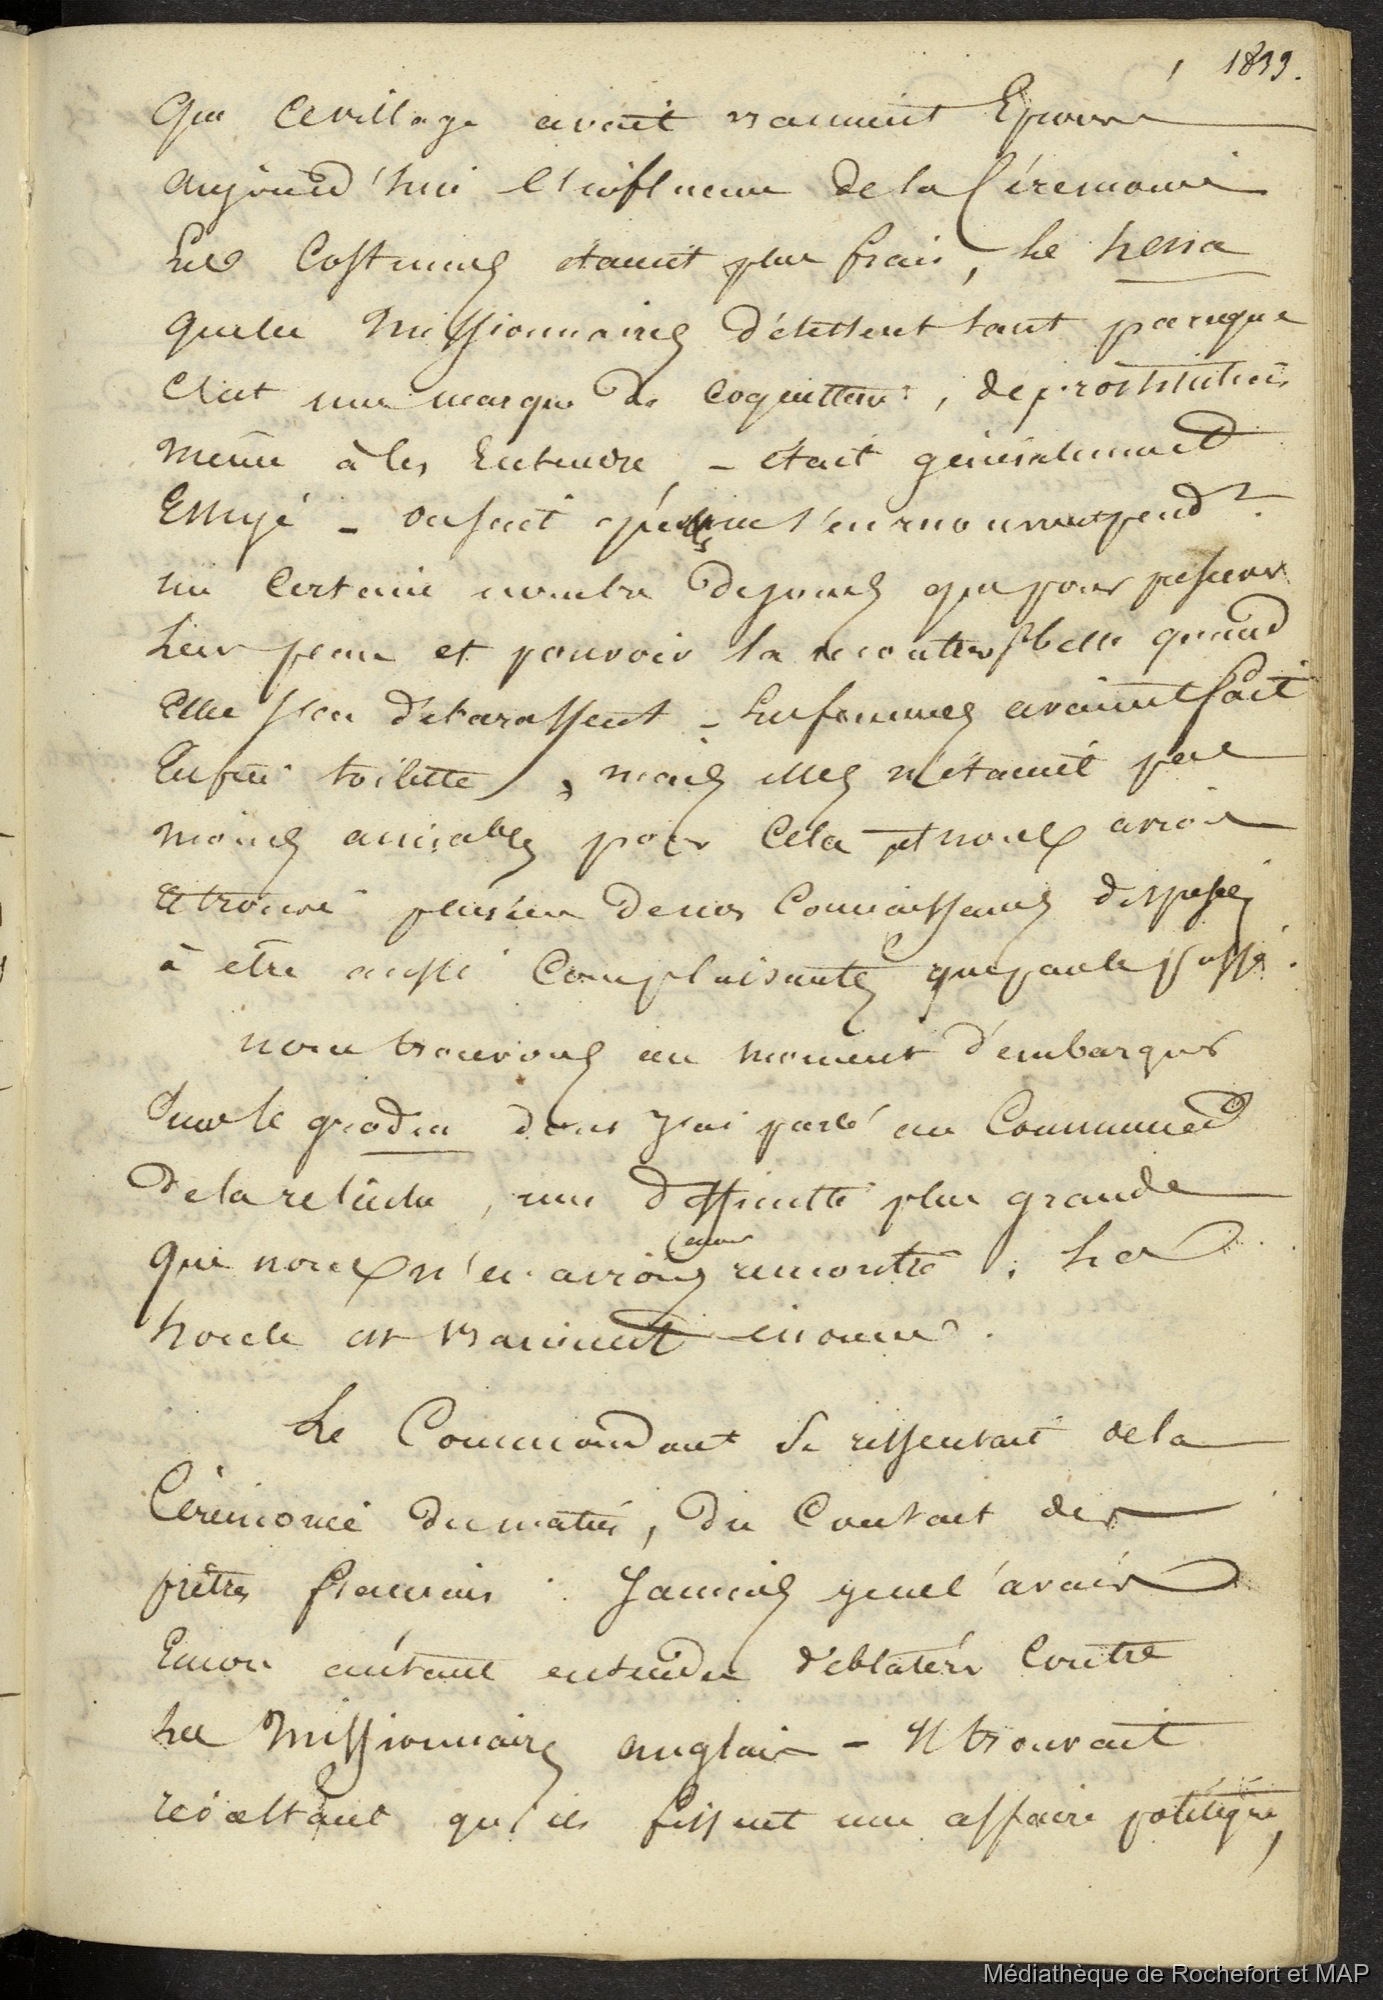 1839.
que ce village avait vraiment Eprouvé
aujourd'hui l'influence de la Cérémonie
Les Costumes étaient plus frais, le hena
que les Missionnaires détestent tant parceque
c'est une marque de coquetterie, de prostitution
même à les Entendre, - était généralement
Essuyé - on sait qu'elles ne s'en couvrent pend.t
un certain nombre de jours que pour
leur peau et pouvoir la montrer plus belle quand
elles s'en débarassent - Les femmes avaient fait
Enfin toilette, mais elles n'étaient pas
moins aimables pour Cela et nous avions
retrouvé plusieurs de nos Connaissances disposées
à être aussi Complaisantes que par le passé.
nous trouvons au moment d'embarquer
sur le gradin dont j'ai parlé au Commenc.t
de la relâche, une difficulté plus grande
que nous n'en avions encore rencontré. La
houle est vraiment énorme.
Le Commandant se ressentait de la
Cérémonie du matin, du Contact des
prêtres français. Jamais je ne l'avais
Encore autant entendu déblatérer Contre
les Missionnaires anglais - Il trouvait
révoltant qu'ils fissent une affaire politique,
Médiathèque de Rochefort et MAP